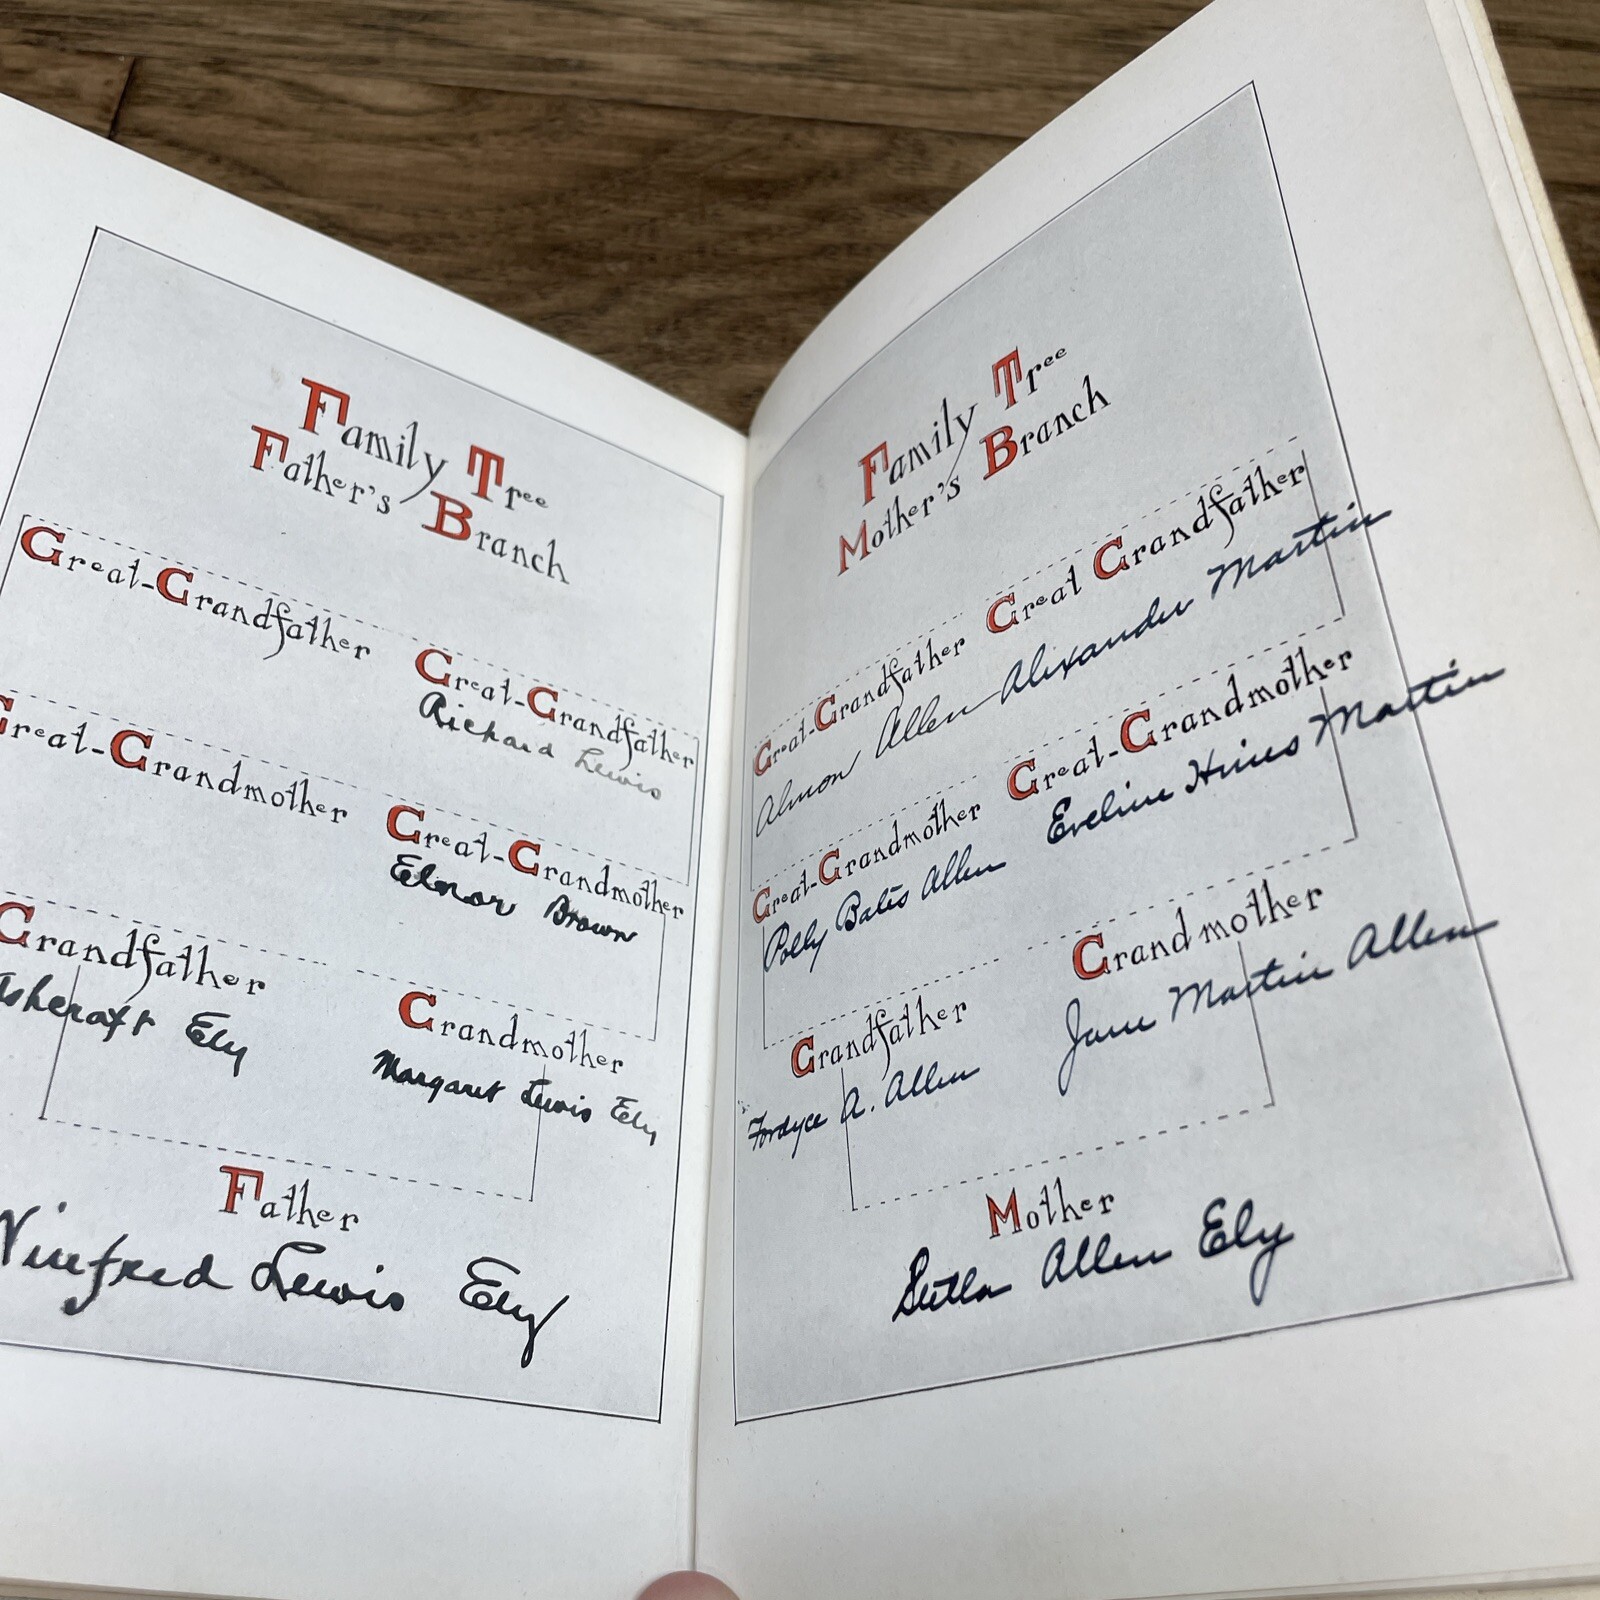 Family Tree
Father's Branch
Great-Grandfather
Great-Grandfather
Richard Lewis
Great-Grandmother
Great-Grandmother
Elnor Brown
Grandfather
Ashcraft Ely
Grandmother
Margaret Lewis Ely
Father
Winfred Lewis Ely
Family Tree
Mother's Branch
Great-Grandfather
Almon Allen
Great Grandfather
Alexander Martin
Great-Grandmother
Polly Bates Allen
Great-Grandmother
Eveline Hines Martin
Grandfather
Fordyce A. Allen
Grandmother
Jane Martin Allen
Mother
Allen Ely